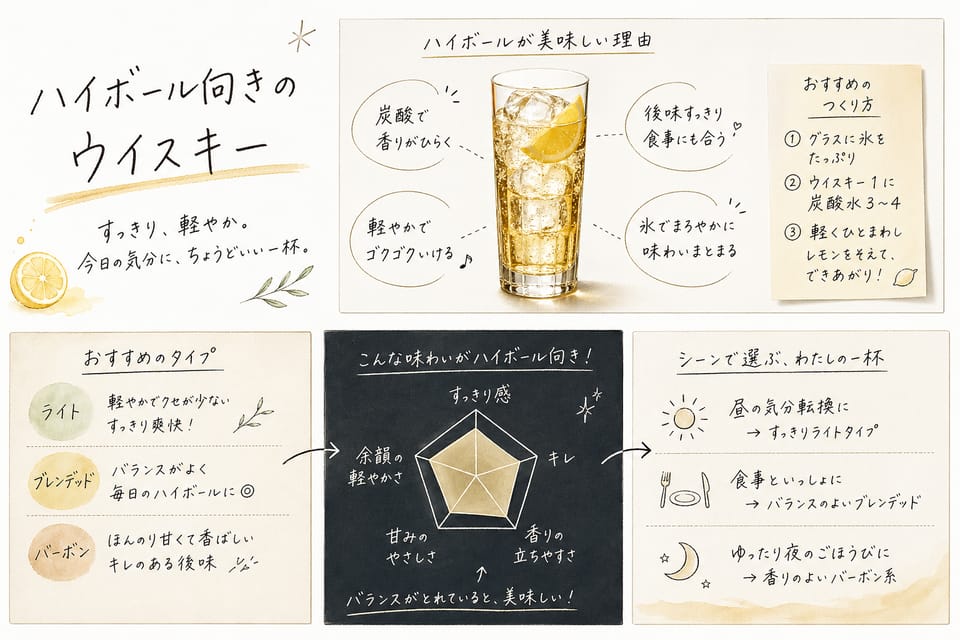 ハイボール向きの
ウイスキー
すっきり、軽やか。
今日の気分に、ちょうどいい一杯。
ハイボールが美味しい理由
炭酸で
香りがひらく
軽やかで
ゴクゴクいける
後味すっきり
食事にも合う
氷でまろやかに
味わいまとまる
おすすめの
つくり方
① グラスに氷を
たっぷり
② ウイスキー1に
炭酸水3〜4
③ 軽くひとまわし
レモンをそえて、
できあがり!
おすすめのタイプ
ライト
軽やかでクセが少ない
すっきり爽快!
ブレンデッド
バランスがよく
毎日のハイボールに◎
バーボン
ほんのり甘くて香ばしい
キレのある後味
こんな味わいがハイボール向き!
すっきり感
キレ
香りの
立ちやすさ
甘みの
やさしさ
余韻の
軽やかさ
バランスがとれていると、美味しい!
シーンで選ぶ、わたしの一杯
昼の気分転換に
→ すっきりライトタイプ
食事といっしょに
→ バランスのよいブレンデッド
ゆったり夜のごほうびに
→ 香りのよいバーボン系